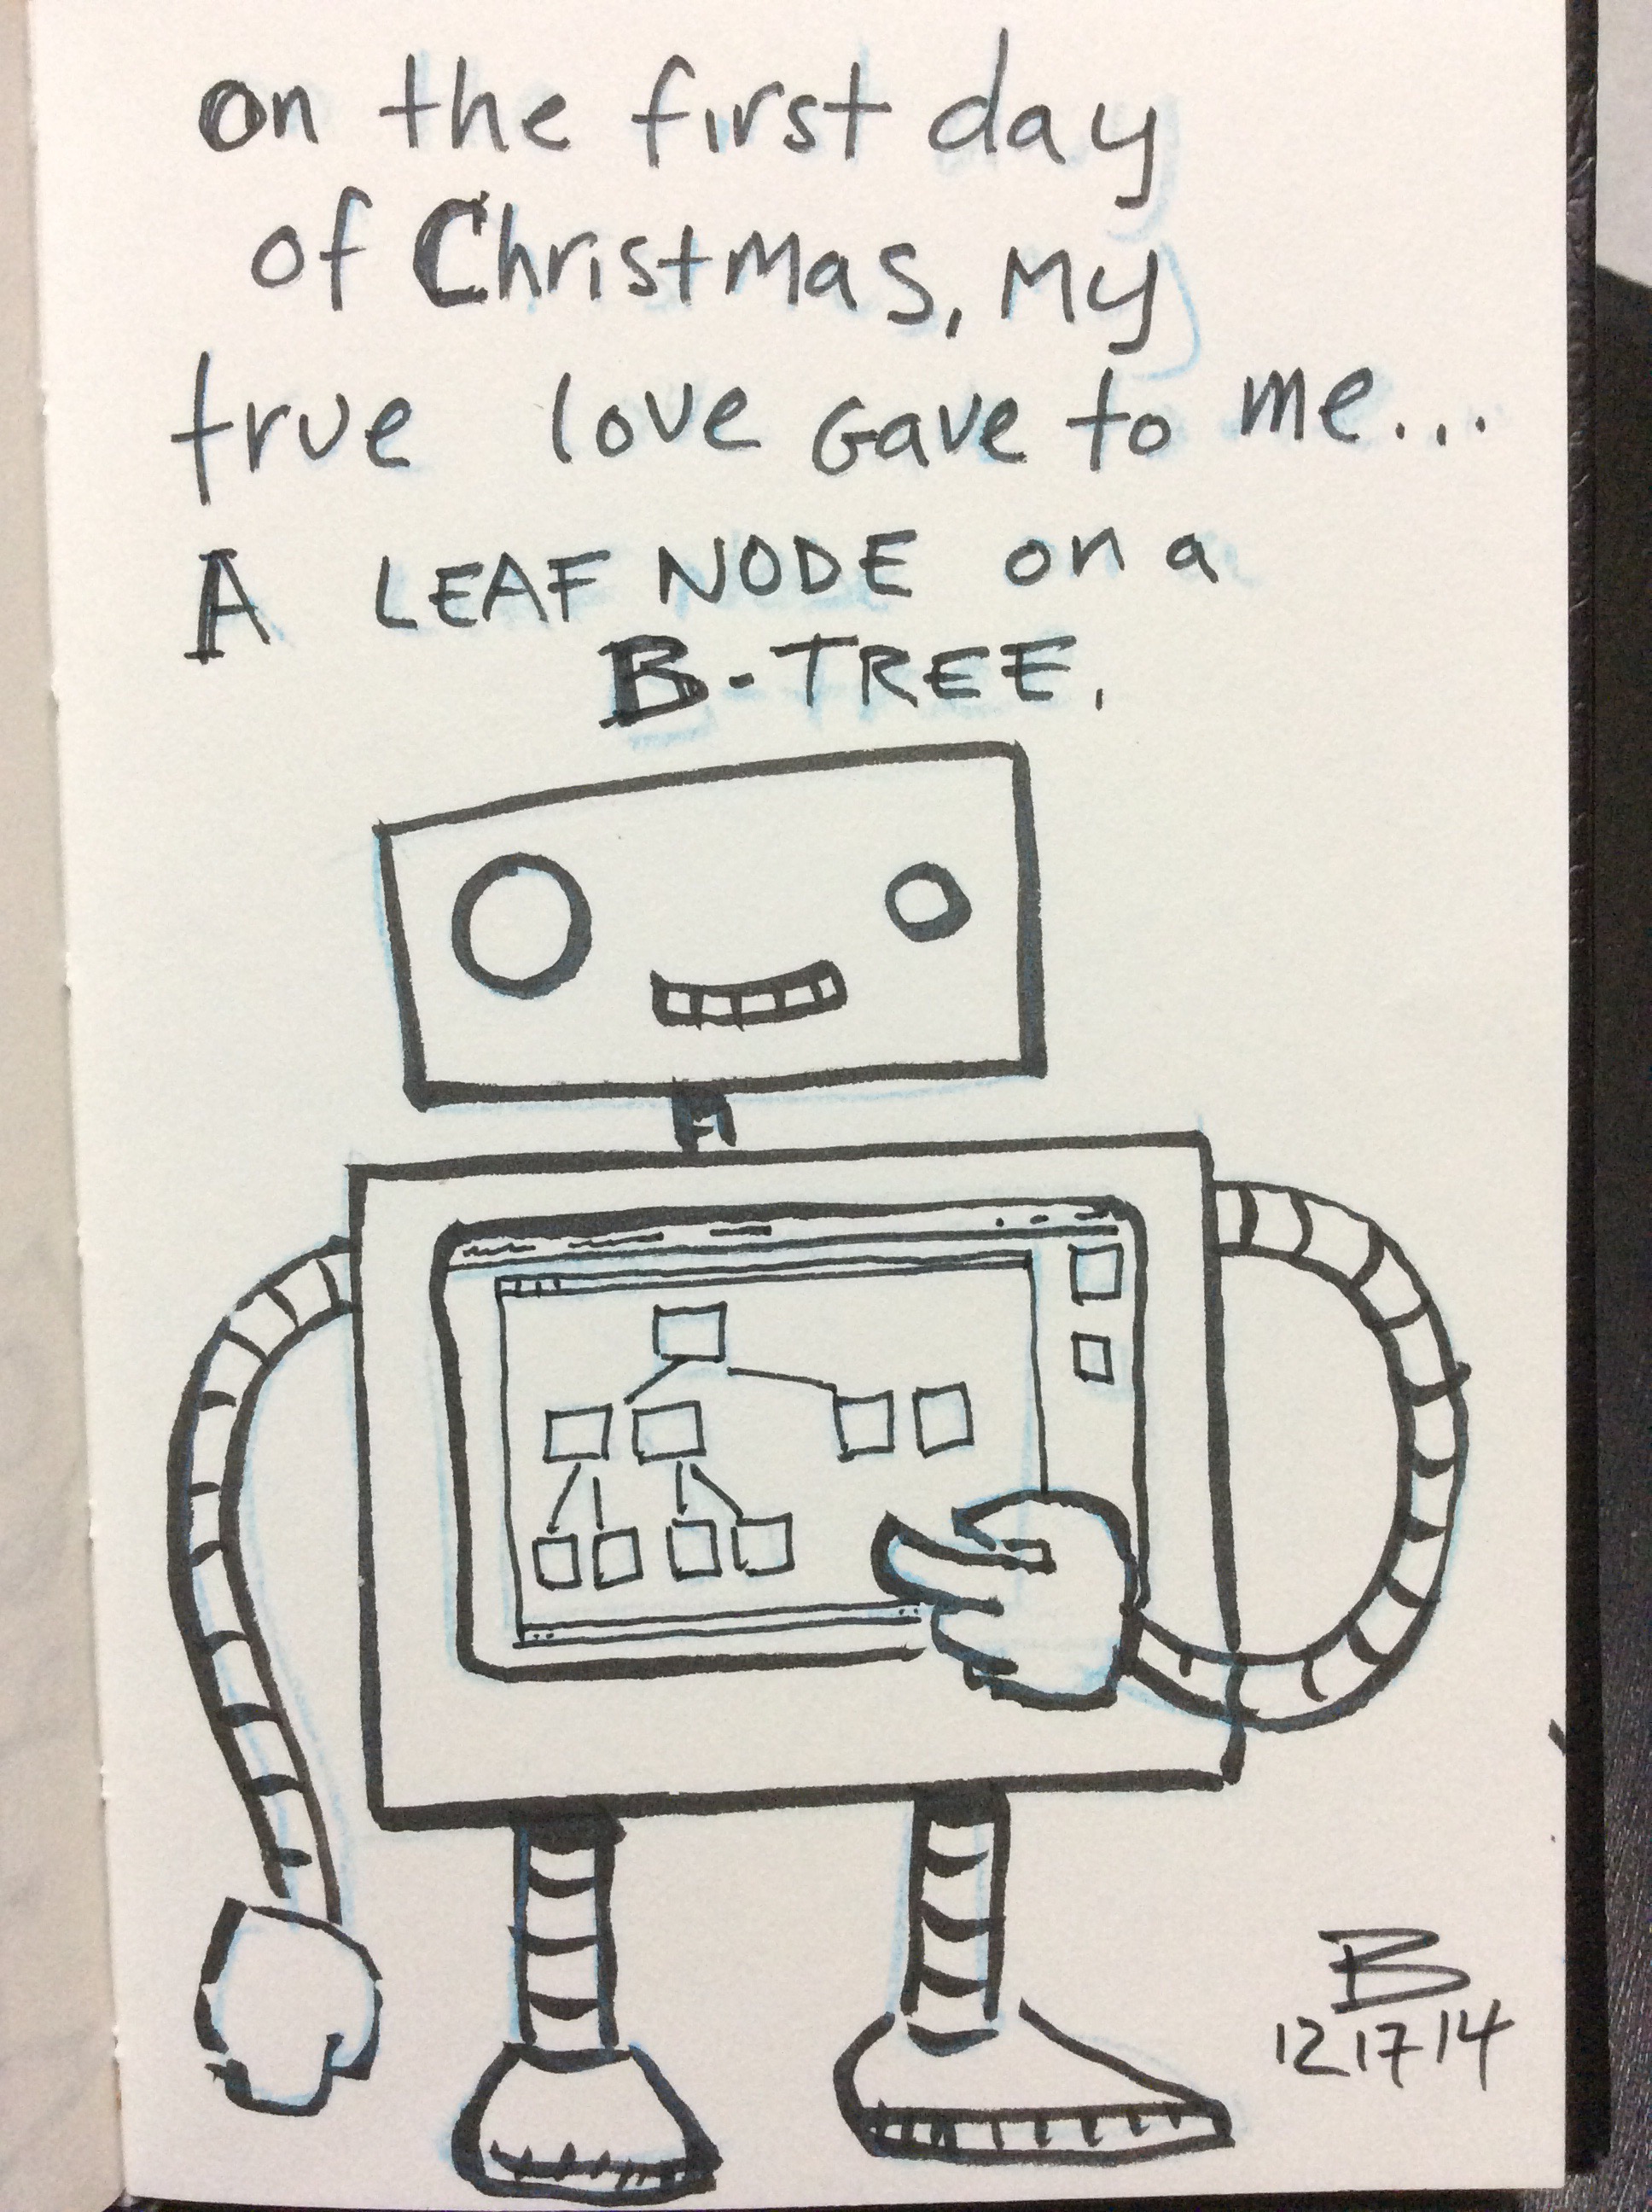 on the first day
of Christmas, my
true love Gave to me...
A LEAF NODE on a
B-TREE.
B
12 17 14